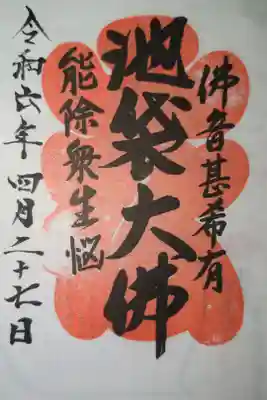 佛音甚希有
池袋大佛
能除衆生悩
令和六年四月二十七日